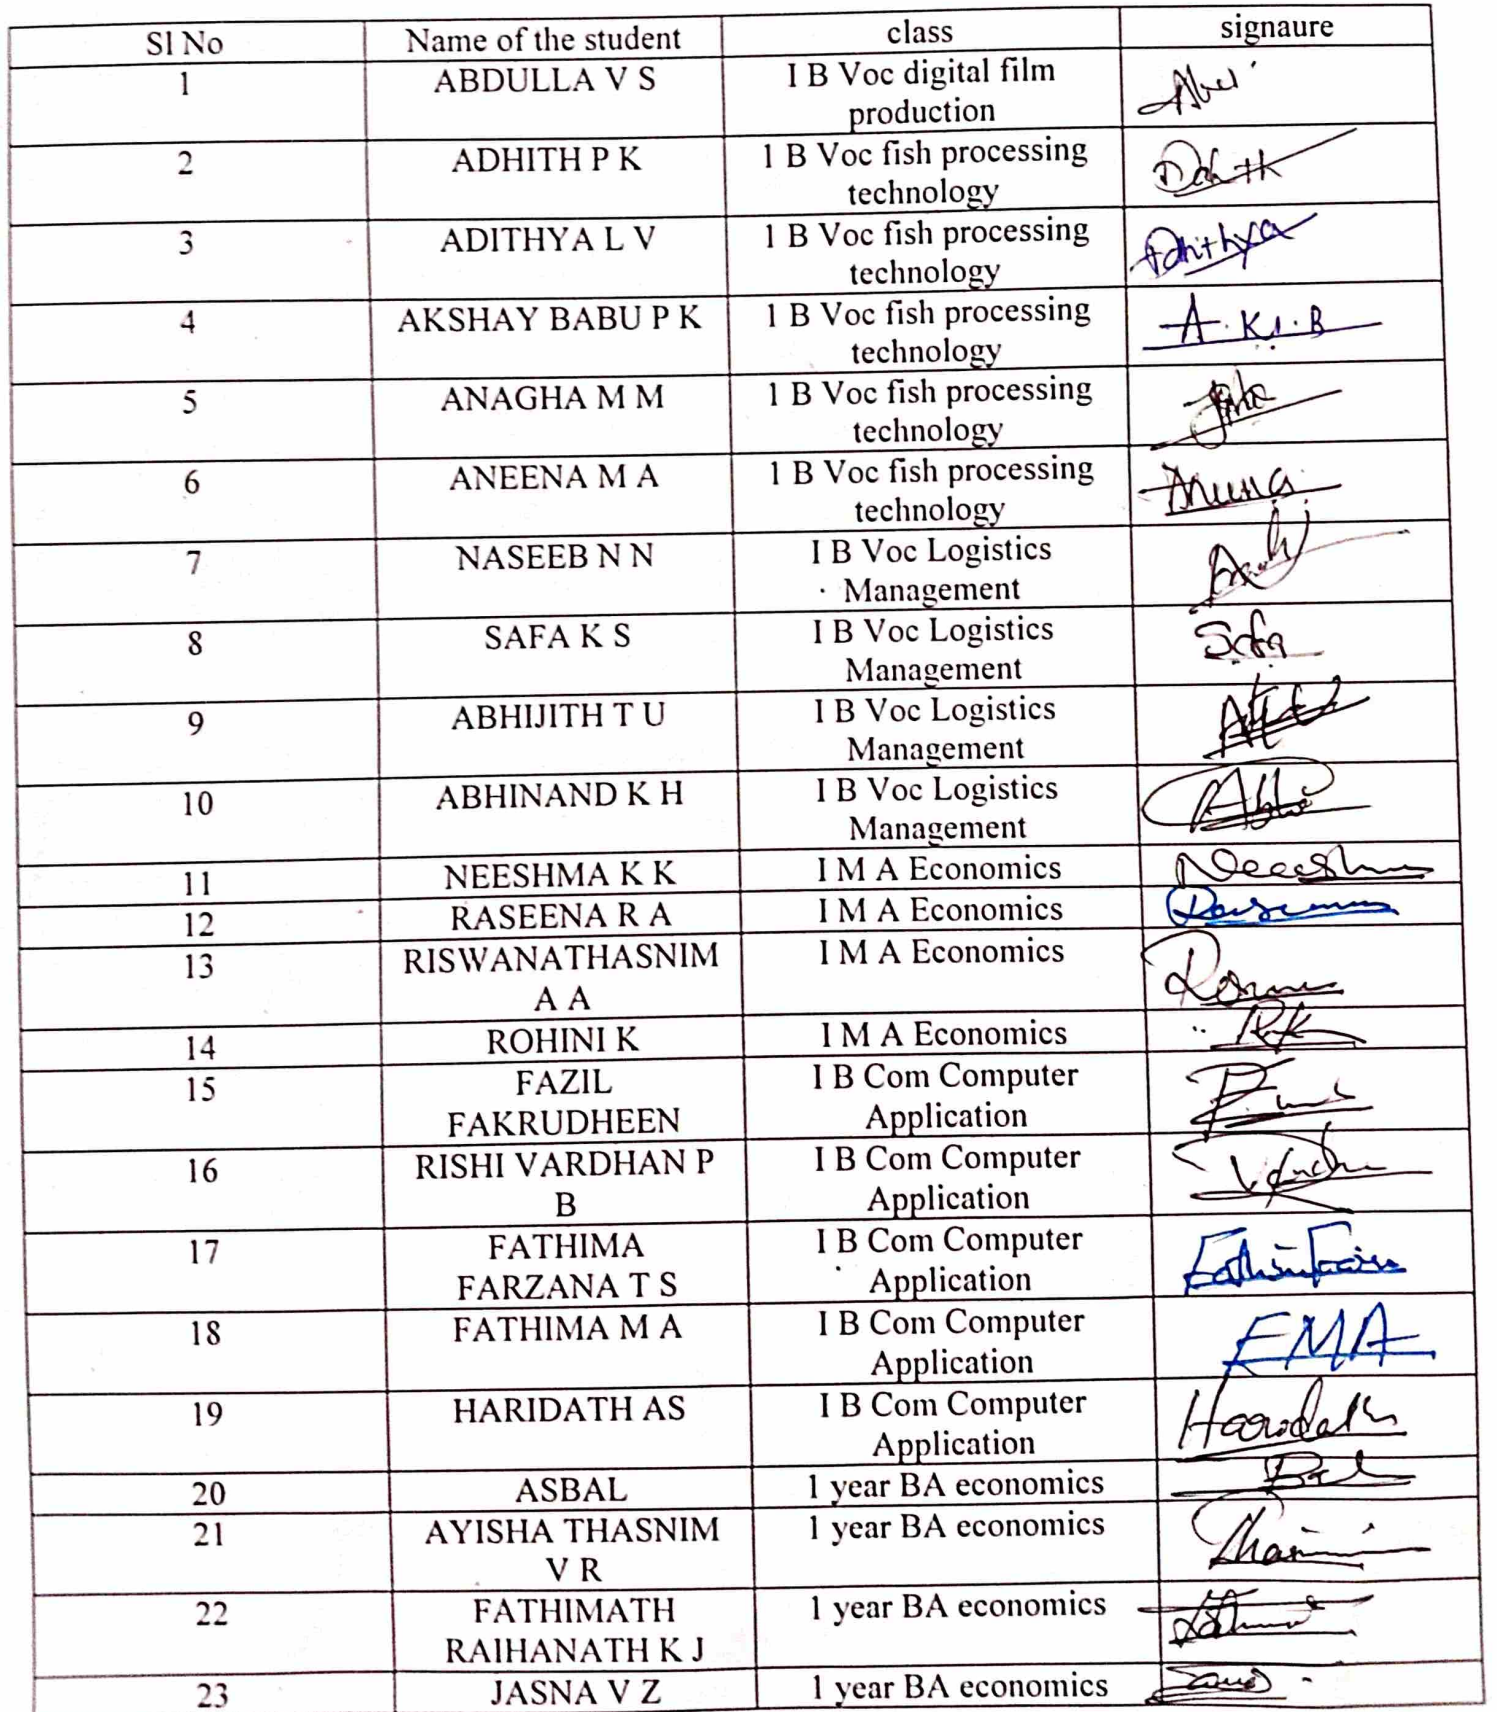 Sl No Name of the student class signaure
1 ABDULLA V S I B Voc digital film
production
2 ADHITH P K 1 B Voc fish processing
technology
3 ADITHYA L V 1 B Voc fish processing
technology
Adhithya
4 AKSHAY BABU P K 1 B Voc fish processing
technology
5 ANAGHA M M 1 B Voc fish processing
technology
6 ANEENA M A 1 B Voc fish processing
technology
7 NASEEB N N I B Voc Logistics
Management
8 SAFA K S I B Voc Logistics
Management
Safa
9 ABHIJITH T U I B Voc Logistics
Management
10 ABHINAND K H I B Voc Logistics
Management
11 NEESHMA K K I M A Economics
12 RASEENA R A I M A Economics
13 RISWANATHASNIM I M A Economics
A A
14 ROHINI K I M A Economics
15 FAZIL I B Com Computer
FAKRUDHEEN Application
16 RISHI VARDHAN P I B Com Computer
B Application
17 FATHIMA I B Com Computer
FARZANA T S Application
18 FATHIMA M A I B Com Computer
Application
FMA
19 HARIDATH AS I B Com Computer
Application
20 ASBAL 1 year BA economics
21 AYISHA THASNIM 1 year BA economics
V R
22 FATHIMATH 1 year BA economics
RAIHANATH K J
23 JASNA V Z 1 year BA economics